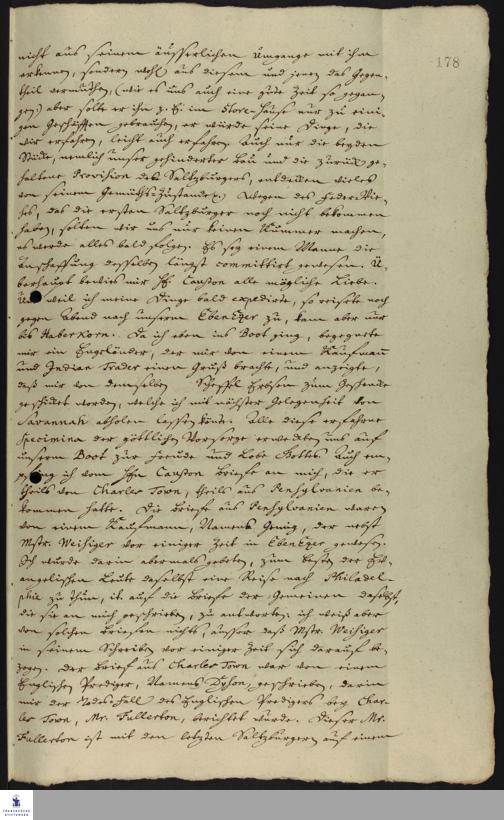 178
nicht aus seinem äusserlichen Umgange mit ihm
erkennen, sondern wohl aus diesem und jenem das Gegen-
theil vermuthen, (wie es uns auch eine gute Zeit so gegan-
gen) aber solte er ihn z. E. im Store-Hause nur zu eini-
gen Geschäfften gebrauchen, er würde seine Dinge, die
wir erfahren, leicht auch erfahren. Auch nur die beyden
Stücke, nemlich unser gehinderter Bau und die zurück ge-
haltene Provision des Saltzburgers, entdecken vieles
von seinem Gemüths-Zustande. Wegen des Feder-Vie-
hes, das die ersten Saltzburger noch nicht bekommen
haben, solten wir uns nur keinen Kummer machen,
es werde alles bald folgen. Es sey einem Manne die
Anschaffung desselben längst committirt gewesen. Ü-
berhaupt bewies mir H. Causton alle mögliche Liebe.
Und weil ich meine Dinge bald expedirte, so reisete noch
gegen Abend nach unserm Ebenezer zu, kam aber nur
bis Haberkorn. Da ich eben ins Boot ging, begegnete
mir ein Engeländer, der mir von einem Kaufmann
und Indian Trader einen Gruß brachte, und anzeigte,
daß mir von demselben Scheffel Erbsen zum Geschencke
geschickt worden, welche ich mit nächster Gelegenheit von
Savannah abholen lassen könte. Alle diese erfahrne
specimina der göttlichen Vorsorge erweckten uns auf
unserm Boot zur Freude und Lobe Gottes. Auch em-
pfing ich vom Hn Causton Briefe an mich, die er
theils von Charles Town, theils aus Pensylvanien be-
kommen hatte. Die Briefe aus Pensylvanien waren
von einem Kaufmann, Namens, der nebst
Mstr. Weisiger vor einiger Zeit in Ebenezer gewesen.
Ich wurde darin abermals gebeten, zum besten der Ev-
angelischen Leute daselbst eine Reise nach Philadel-
phie zu thun, it. auf die Briefe der Gemeinen daselbst,
die sie an mich geschrieben, zu antworten: ich weiß aber
von solchen Briefen nichts, ausser daß Mstr. Weisiger
in seinem Schreiben vor einiger Zeit sich darauf be-
zogen. Der Brief aus Charles Town war von einem
Englischen Prediger, Namens Dyson, geschrieben, darin
mir der Todes-Fall des Englischen Predigers bey Char-
les Town, Mr. Fullerton, berichtet wurde. Dieser Mr.
Fullerton ist mit den letzten Saltzburgern auf einem
FRANCKESCHE
STIFTUNGEN